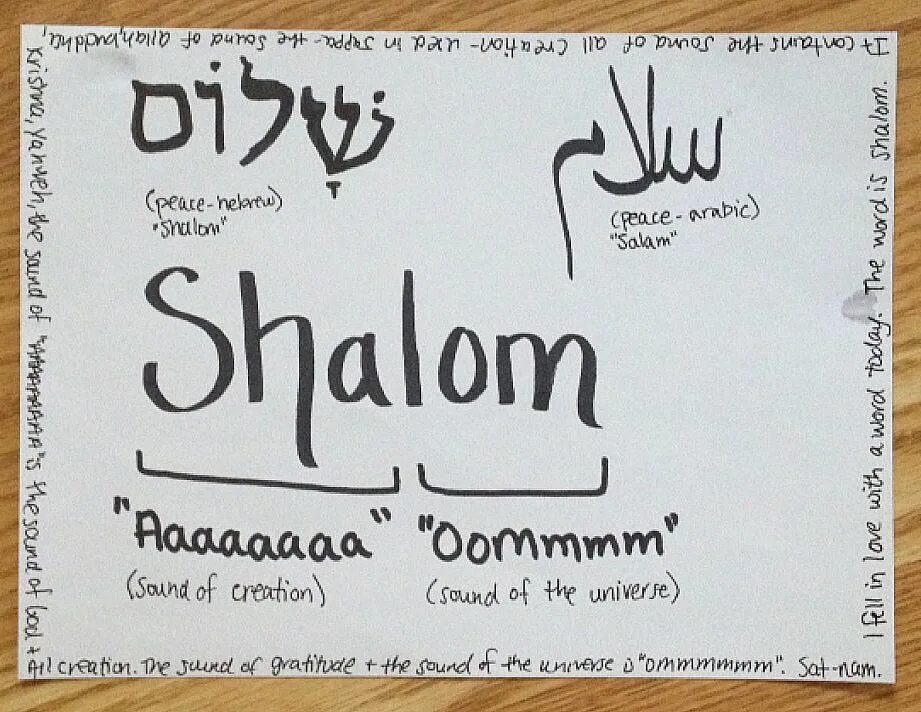 שָׁלוֹם
(peace-hebrew)
"Shalom"
سلام
(peace-arabic)
"Salam"
Shalom
"Aaaaaaaa" "Oommmm"
(sound of creation) (sound of the universe)
I fell in love with a word today. The word is shalom.
It contains the sound of all creation-used in Jappa-the sound of allah, buddha,
Krishna, Yahweh, the sound of "AAAAAAAA" is the sound of God +
All creation. The sound of gratitude + the sound of the universe is "ommmmmmm". Sat-nam.